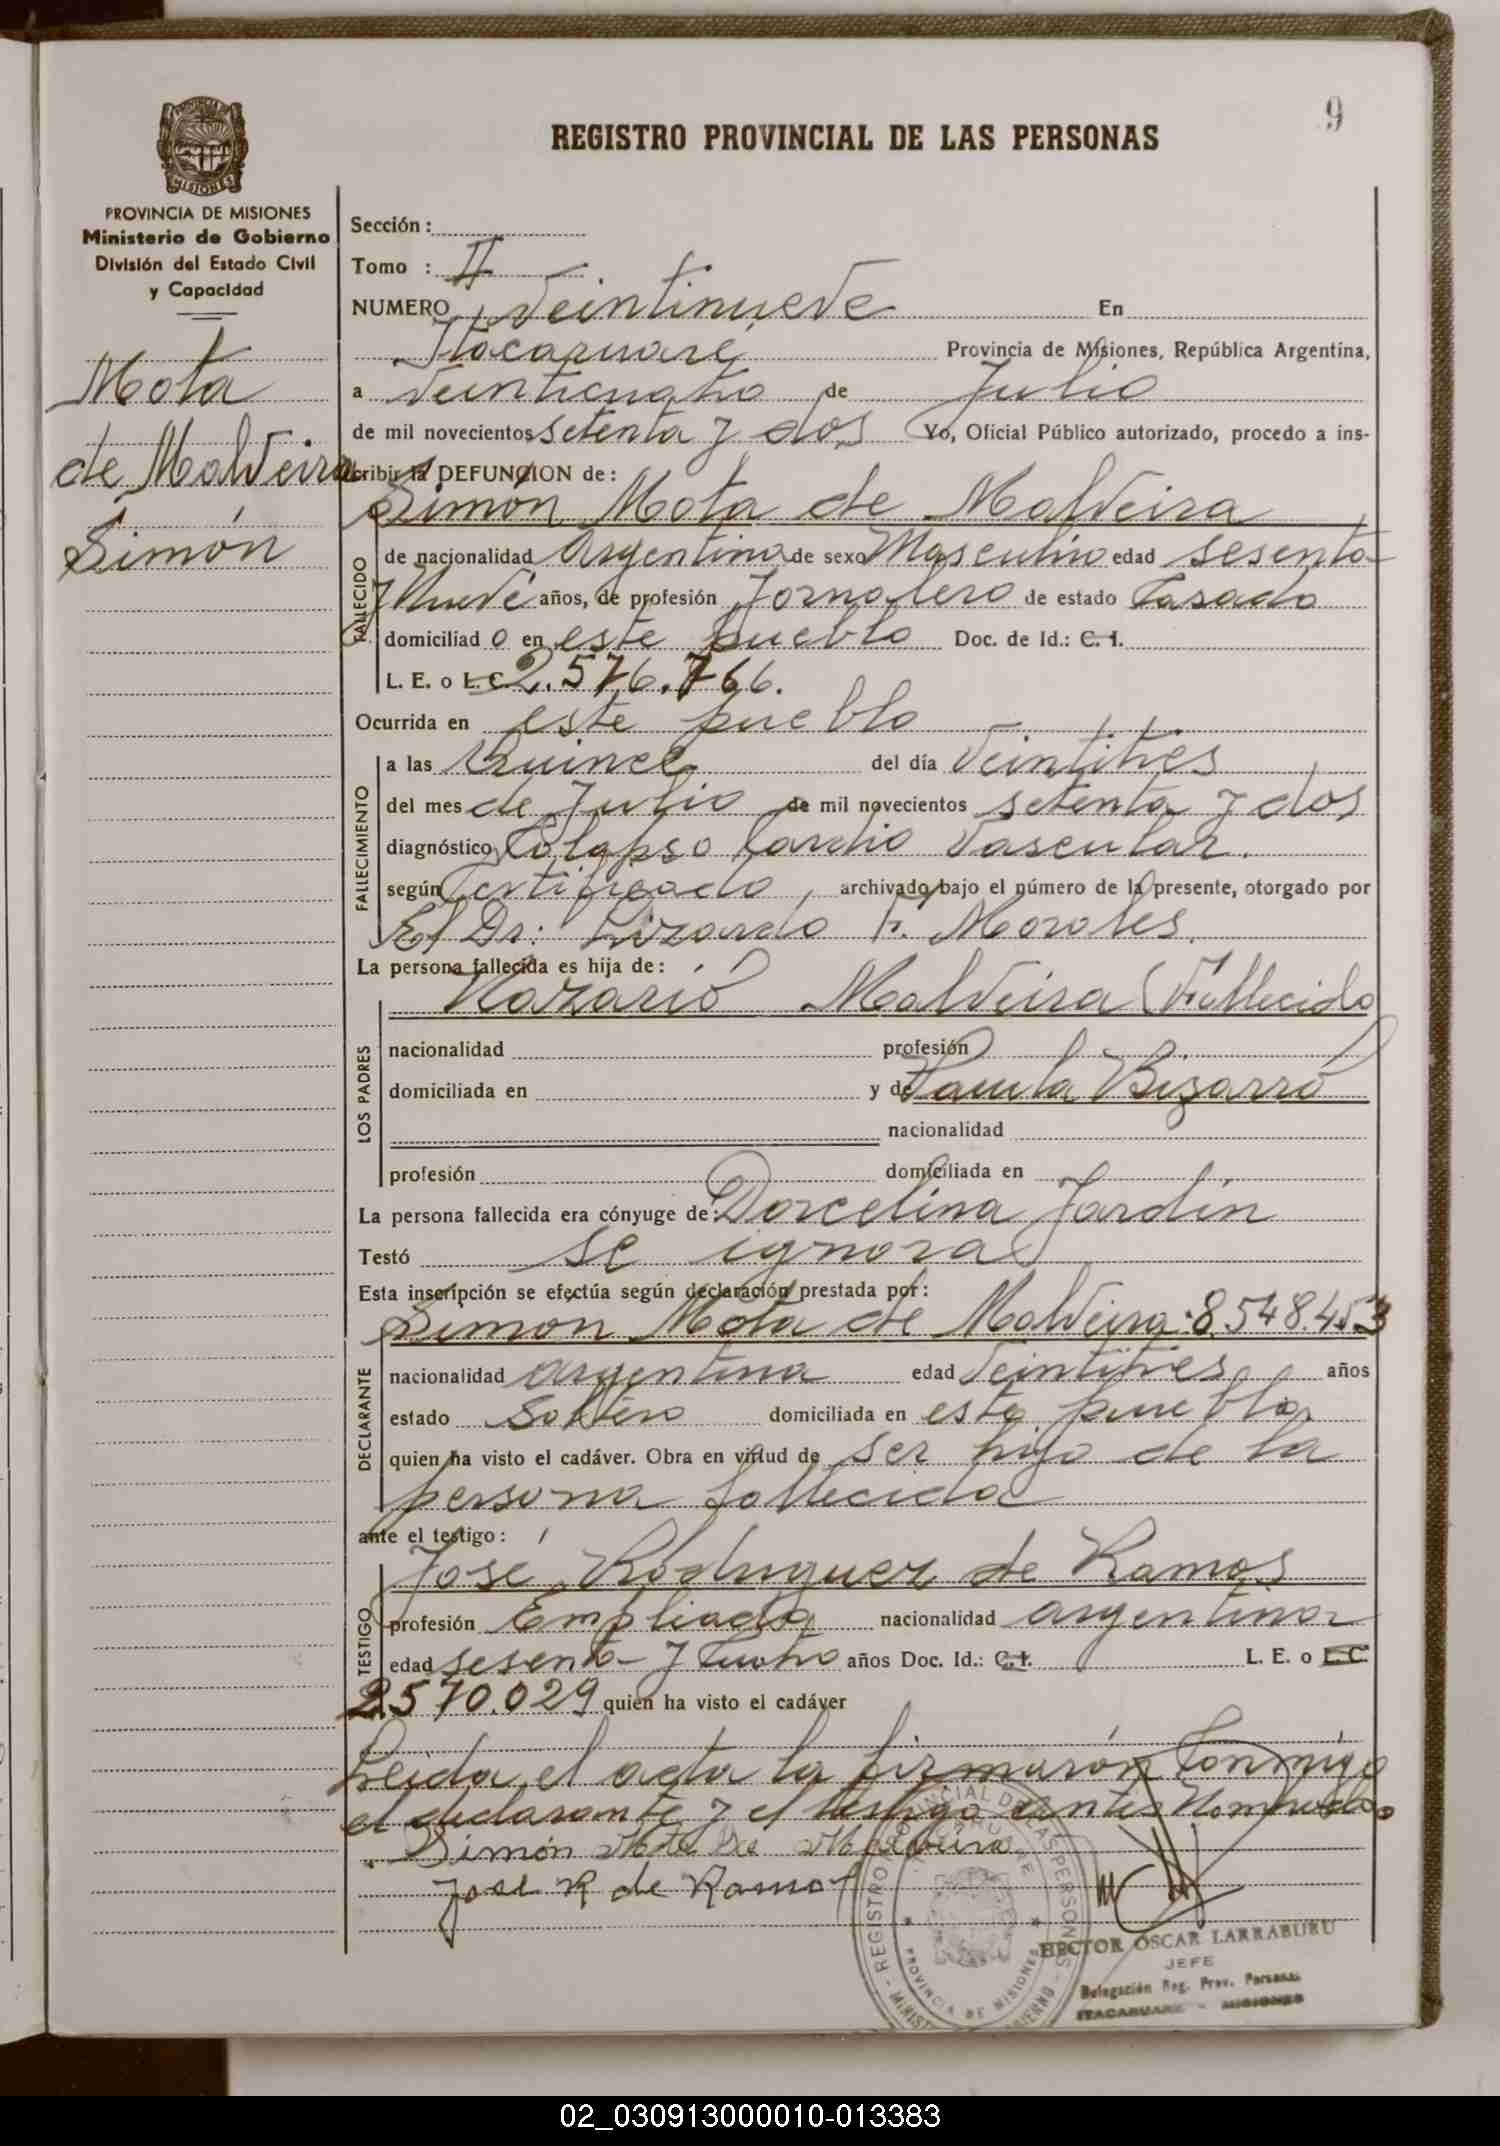 9
REGISTRO PROVINCIAL DE LAS PERSONAS
PROVINCIA DE MISIONES
Ministerio de Gobierno
División del Estado Civil
y Capacidad
Mota
de Malveira
Simón
Sección:
Tomo : II
NUMERO veintinueve En
Itacaruaré Provincia de Misiones, República Argentina,
a veinticuatro de Julio
de mil novecientos setenta y dos Yo, Oficial Público autorizado, procedo a ins-
cribir la DEFUNCION de:
Simón Mota de Malveira
FALLECIDO
de nacionalidad Argentina de sexo Masculino edad sesenta
y Nueve años, de profesión Jornalero de estado Casado
domiciliad o en este pueblo Doc. de Id.: C. I.
L. E. o L. C. 2.576.766.
Ocurrida en este pueblo
FALLECIMIENTO
a las Quince del día veintitres
del mes de Julio de mil novecientos setenta y dos
diagnóstico Colapso Cardio Vascular.
según Certificado, archivado bajo el número de la presente, otorgado por
El Dr: Lizardo F. Morales.
La persona fallecida es hija de:
LOS PADRES
Nazario Malveira (Fallecido
nacionalidad profesión
domiciliada en y de Paula Bizarro
nacionalidad
profesión domiciliada en
La persona fallecida era cónyuge de: Dorcelina Jardín
Testó se ignora
Esta inscripción se efectúa según declaración prestada por:
Simon Mota de Malveira 8.548.453
DECLARANTE
nacionalidad argentina edad veintitres años
estado Soltero domiciliada en este pueblo,
quien ha visto el cadáver. Obra en virtud de ser hijo de la
persona fallecida
ante el testigo:
José Rodriguez de Ramos
TESTIGO
profesión Empliado nacionalidad argentina
edad sesenta y Cuatro años Doc. Id.: C. I. L. E. o L. C.
2.570.029 quien ha visto el cadáver
Leida el acta la firmarón Conmigo
el declarante y el testigo antes Nombrados
Simón Mota de Malveira
José R de Ramos
HECTOR OSCAR LARRABURU
JEFE
Delegación Reg. Prov. Personas
ITACARUARE - MISIONES
02_030913000010-013383